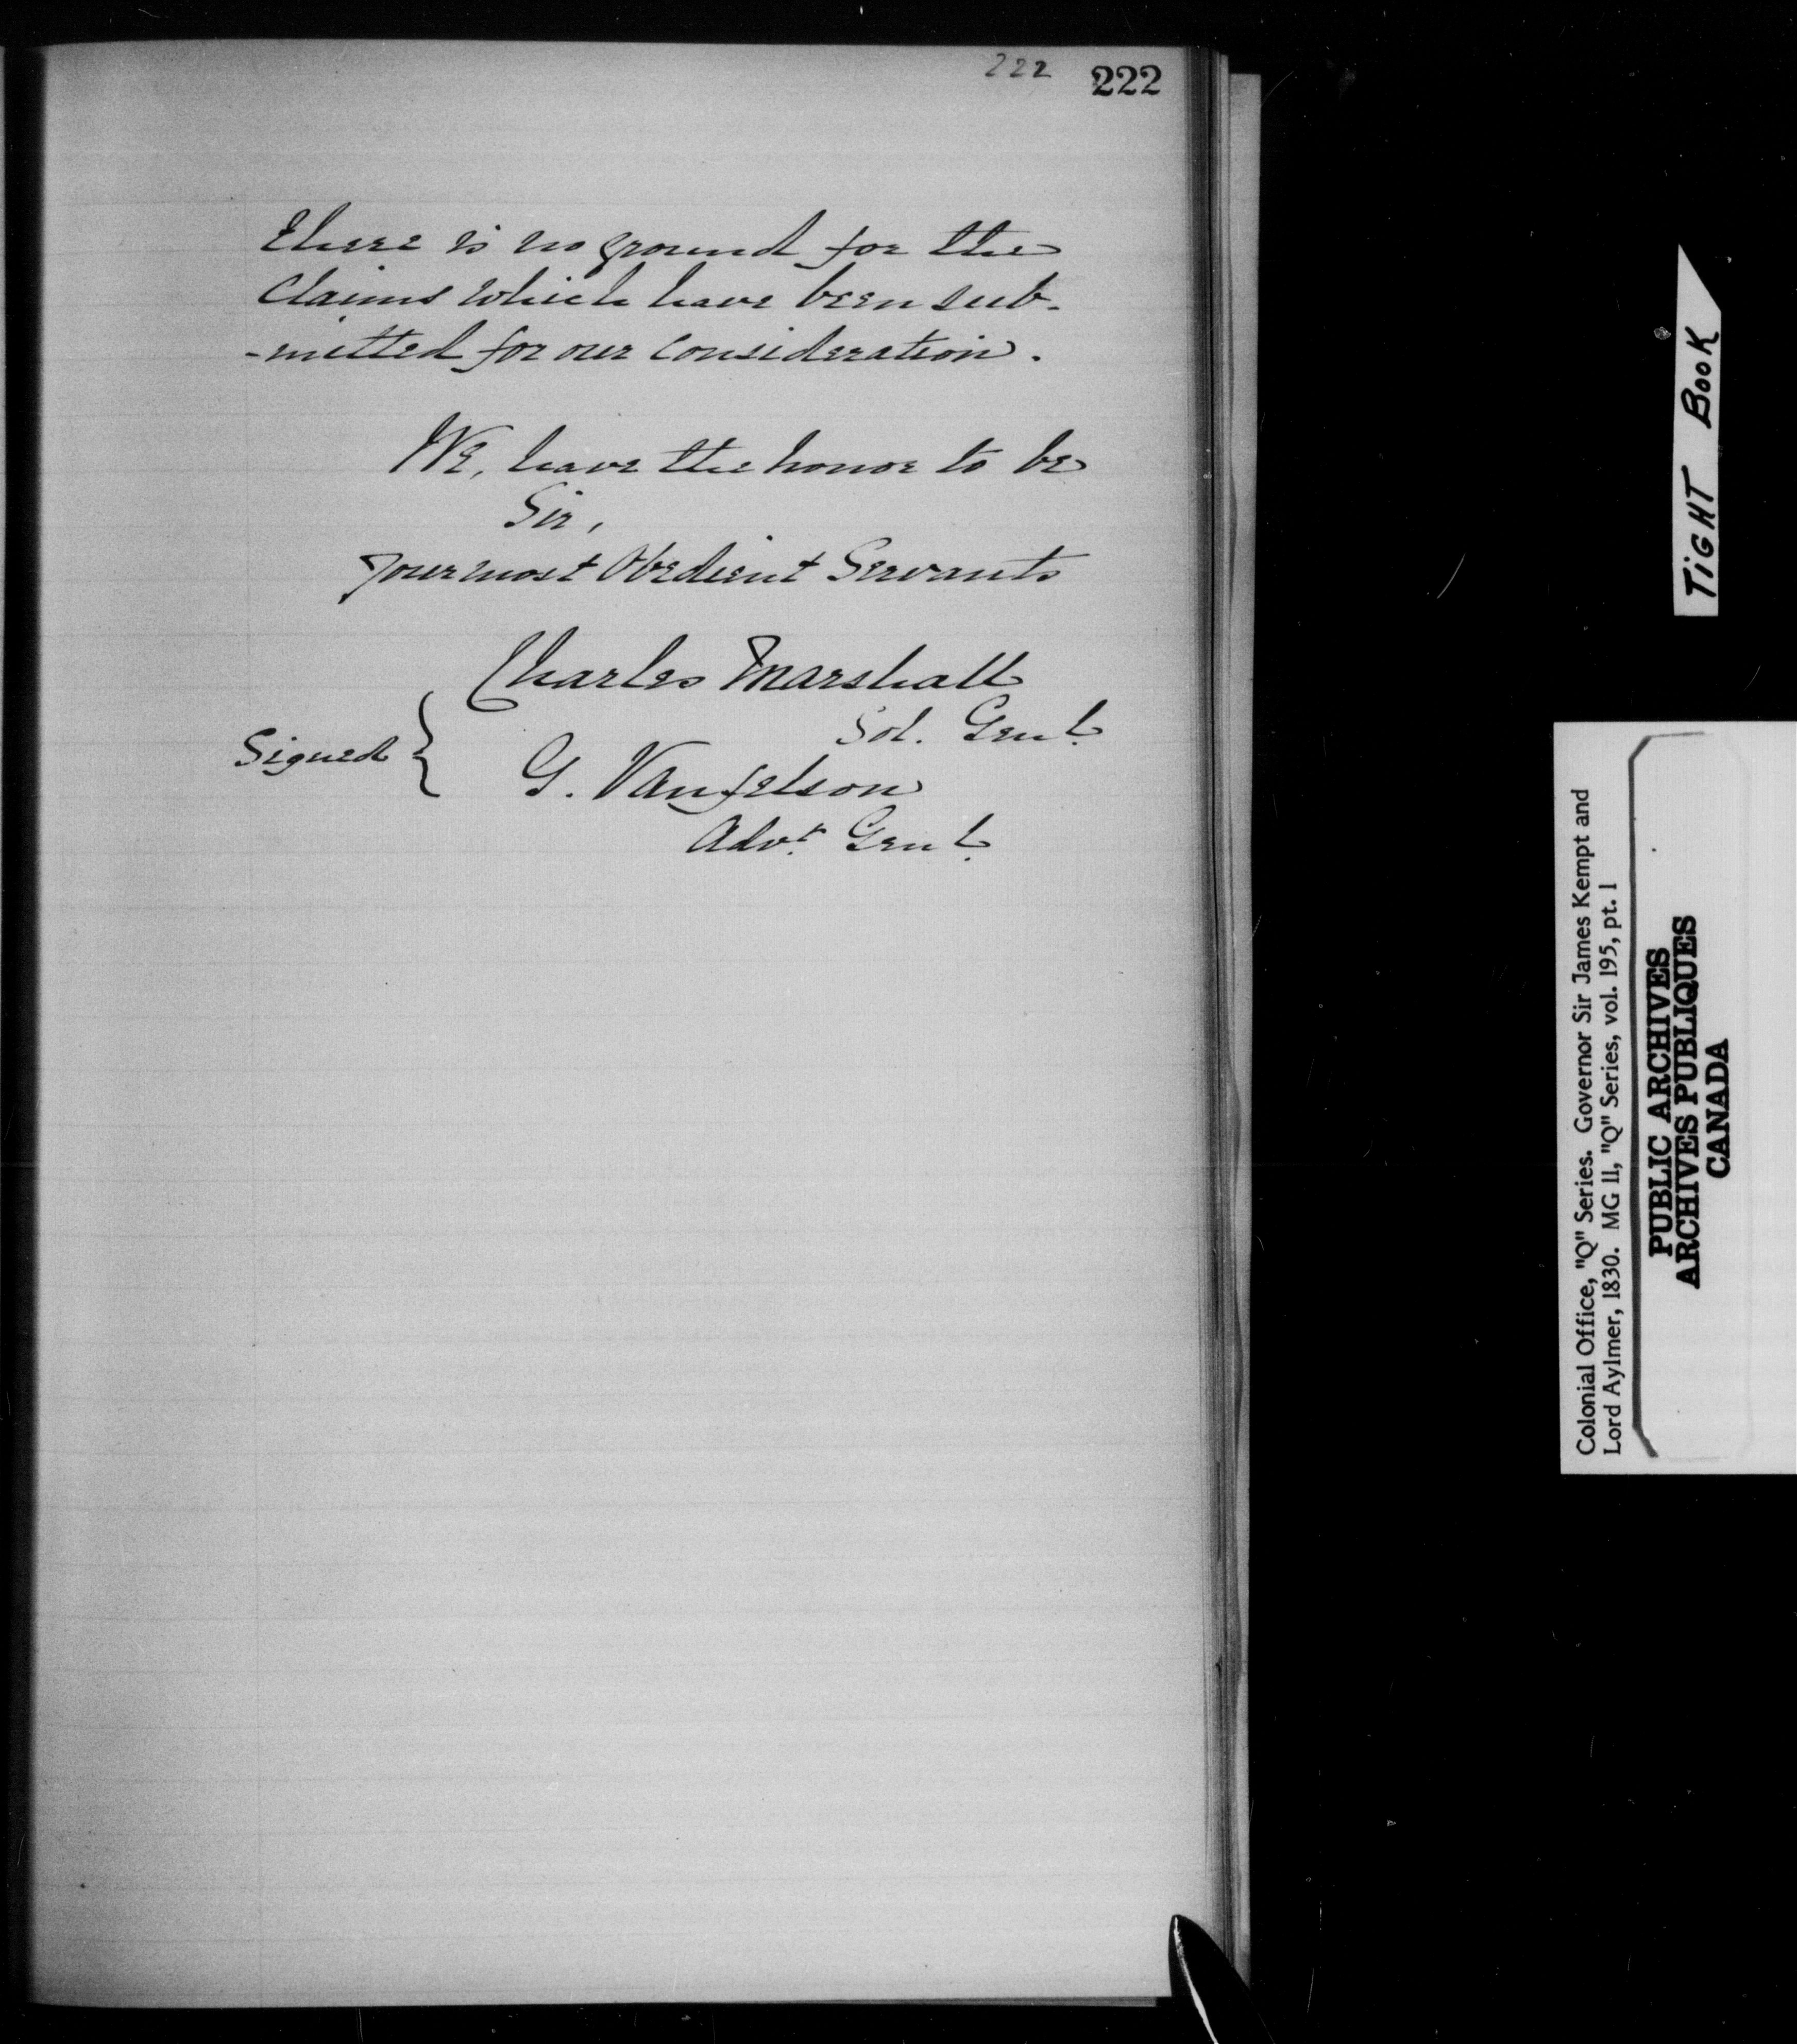 222 222
there is no ground for the
Claims which have been sub-
-mitted for our consideration.
We, have the honor to be
Sir,
your most Obedient Servants
Charles Marshall
Sol. Genl.
Signed {
G. Vanfelson
Advt. Genl.
TIGHT BOOK
Colonial Office, "Q" Series. Governor Sir James Kempt and
Lord Aylmer, 1830. MG 11, "Q" Series, vol. 195, pt. 1
PUBLIC ARCHIVES
ARCHIVES PUBLIQUES
CANADA